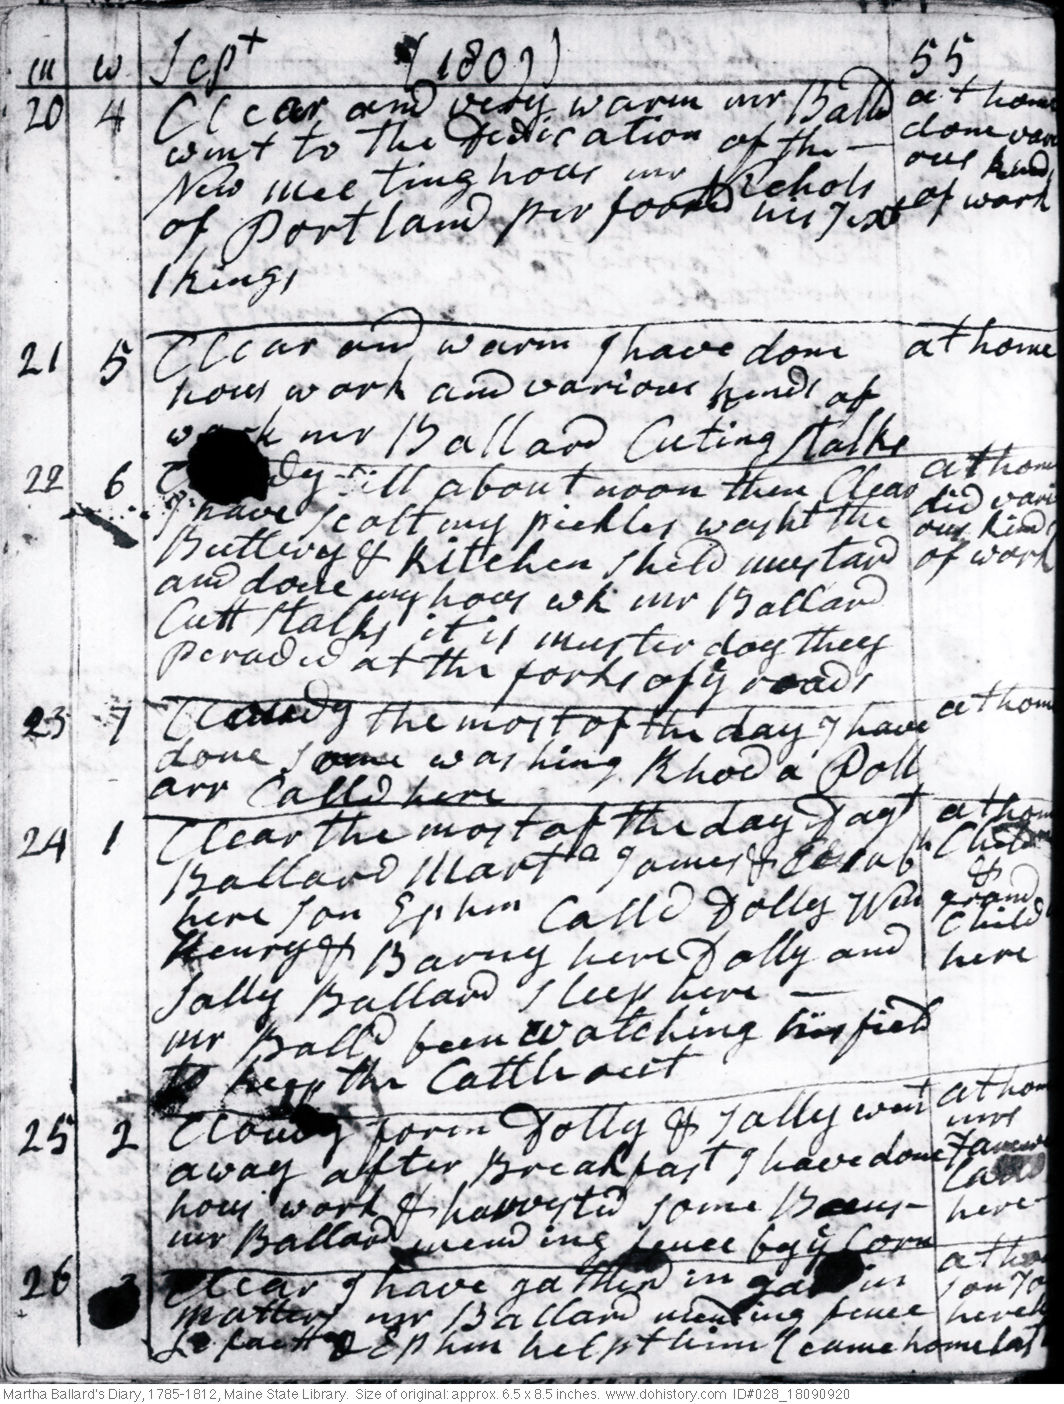 m w Sept (1809) 55
20 4 Clear and very warm mr Balld at home
went to the Dedication of the — done vari
New meeting hous mr Nichols ous kinds
of Portland performd his Text of work
1 kings
21 5 Clear and warm I have done at home
hous work and various kinds of
work mr Ballard Cuting Stalks
22 6 till about noon then Clear at home
I have Scalt my pickles washt the did vari
Buttery & Kitchen Sheld mustard ous kinds
and done my hous wk mr Ballard of work
Cutt Stalks it is muster day they
peraded at the forks of ye roads
23 7 Cloudy the most of the day I have at home
done some washing Rhoda Poll
ard Calld here
24 1 Clear the most of the day at home
Ballard Marta James & here Child
here Son Ephm Calld Dolly Wm &
Henry & Barny here Dolly and grand
Sally Ballard Sleep here — Child
mr Balld been watching his field here
to keep the Cattle out
25 2 Cloudy forn Dolly & Sally went at home
away after Breakfast I have done mrs
hous work & harvsted some Beens —
mr Ballard mending fence by ye Corn here
26 3 Clear I have gatherd in gardin at home
matters mr Ballard mending fence son
& Ephm helpt him here